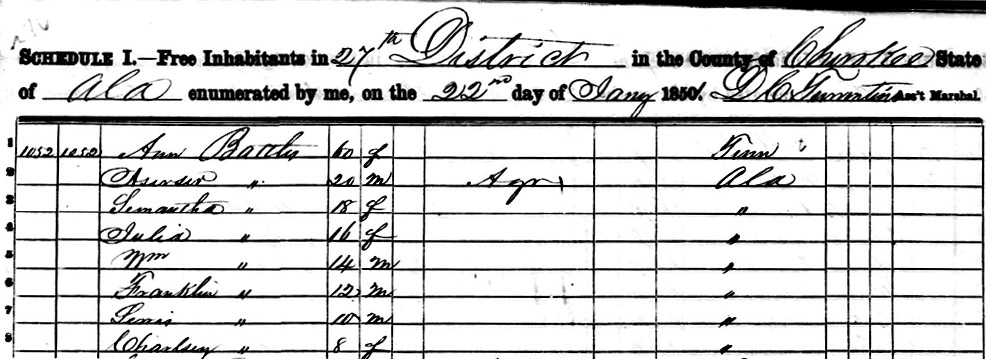 SCHEDULE I.—Free Inhabitants in 27th District in the County of Cherokee State
of Ala enumerated by me, on the 22nd day of Jany 1850. Ass't Marshal.
1 1052 1052 Ann 60 f Tenn
2 " 20 m Agr Ala
3 Semantha " 18 f "
4 Julia " 16 f "
5 Wm " 14 m "
6 Franklin " 12 m "
7 " 10 m "
8 " 8 f "